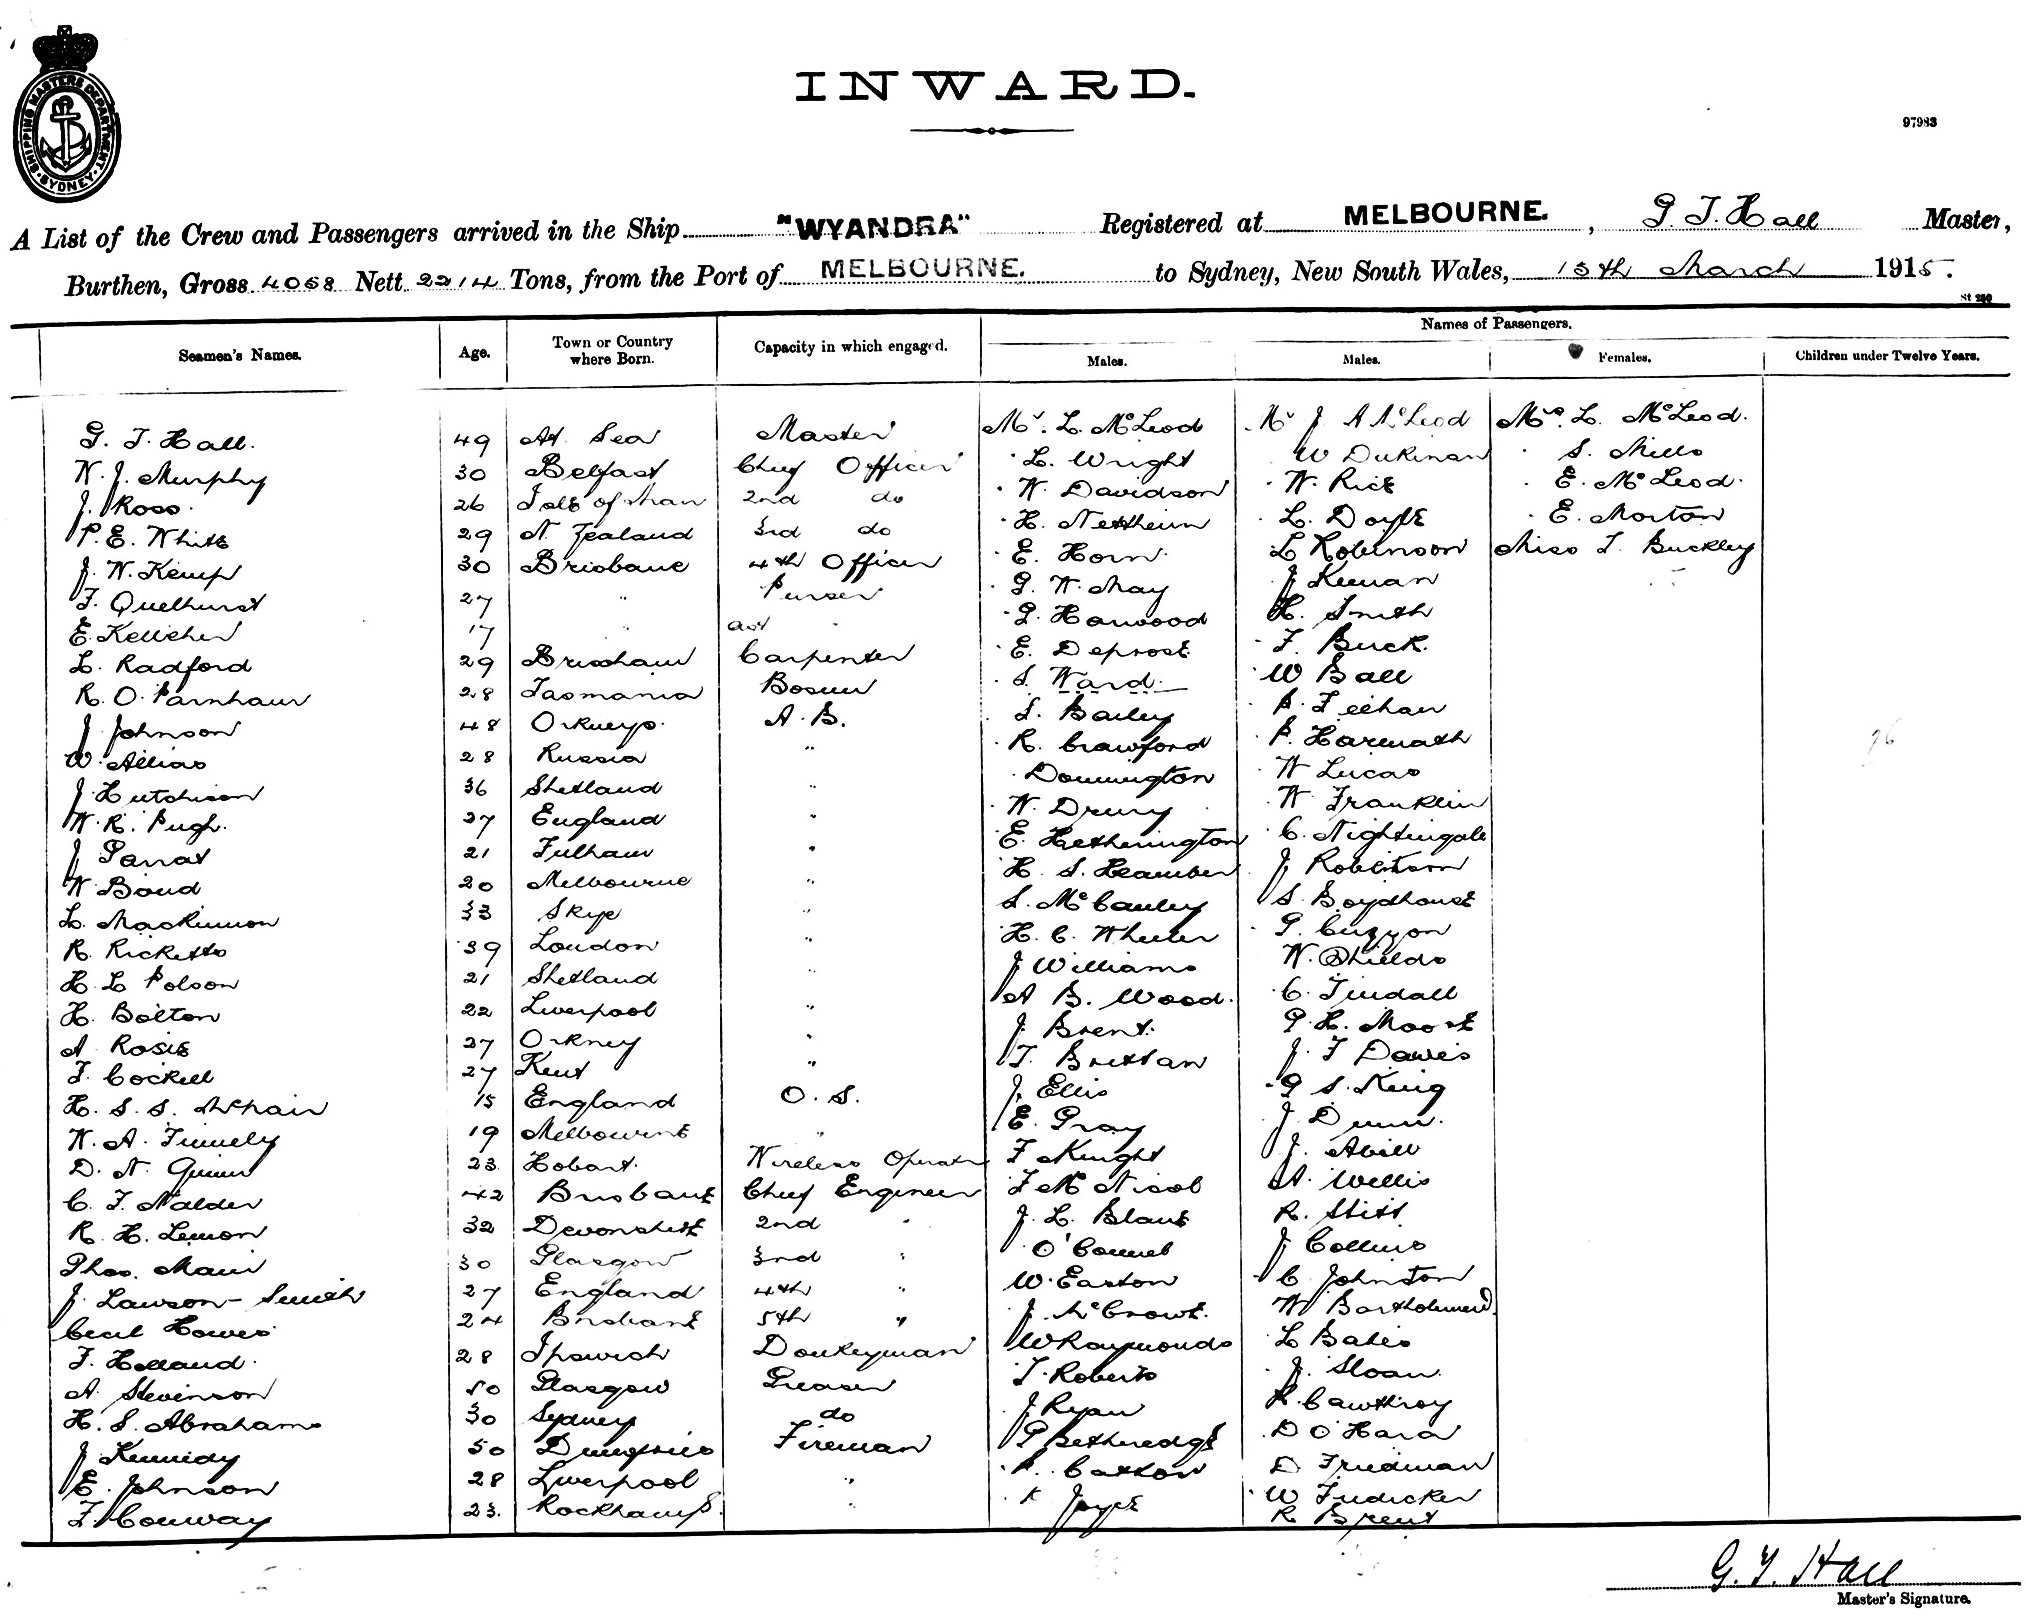 INWARD.
97983
SHIPPING MASTERS DEPARTMENT. SYDNEY.
A List of the Crew and Passengers arrived in the Ship "WYANDRA" Registered at MELBOURNE. , G. T. Hall Master,
Burthen, Gross 4058 Nett 2214 Tons, from the Port of MELBOURNE. to Sydney, New South Wales, 15th March 1915.
St 280
Names of Passengers.
Seamen's Names. Age. Town or Country where Born. Capacity in which engaged. Males. Males. Females. Children under Twelve Years.
G. T. Hall. 49 At Sea Master Mr. L. McLeod Mr J A McLeod Mrs. L. McLeod.
W. J. Murphy 30 Belfast Chief Officer L. Wright W Dickman S. Mills
J. Ross. 26 Isle of Man 2nd do W. Davidson W. Rice E. McLeod.
P. E. White 29 N. Zealand 3rd do H. Nettheim L. Doyle E. Morton
J. W. Kemp 30 Brisbane 4th Officer E. Horn L Robinson Miss T. Buckley
F. Quelhurst 27 " Purser G. W. May J Keenan
E. Kelleher 17 " ast " G. Harwood H. Smith
L. Radford 29 Brixham Carpenter E. Deprose F. Buck.
R. O. Parnham 28 Tasmania Bosun S. Ward. W Ball
J Johnson 48 Orkneys. A. B. S. Bailey P. Feehan
W. Allias 28 Russia " R. Crawford P. Harwath
J. Hutchison 36 Shetland " Donnington W Lucas
W. R. Pugh. 27 England " W. Drury W. Franklin
J Garrat 21 Fulham " E. Hetherington C. Nightingale
W. Bond 20 Melbourne " H. S. Heamben J. Robertson
L. MacKinnon 33 Skye " S. McCauley S. Boydhouse
R. Ricketts 39 London " H. C. Wheeler G. Curzon
H. L Polson 21 Shetland " J Williams W. Shields
H. Bolton 22 Liverpool " A B. Wood. C. Tindall
A Rosie 27 Orkney " J. Brent. G. H. Moore
F. Cockell 27 Kent " T. Brittan J. F Davies
H. S. S. McNair 15 England O. S. J. Ellis G S. King
W. A. Finnely 19 Melbourne " E. Gray J. Dunn.
D. N. Quinn 23 Hobart. Wireless Operator F Knight J. Abell
C. F. Nalder 42 Brisbane Chief Engineer F McNicol A. Willis
R. H. Lemon 32 Devonshire 2nd " J. L. Blank R. Stitt
Thos. Main 30 Glasgow 3rd " O'Connel J Collins
J. Lawson-Smith 27 England 4th " W. Easton C. Johnston
Cecil Howes 24 Brisbane 5th " J. McCrowe. W Bartholomew
F. Holland. 28 Ipswich Donkeyman W Raymonds L Bates
A Stevenson 50 Glasgow Greaser T. Roberts J. Sloan.
H. S. Abrahams 30 Sydney do J Ryan R. Cawthray
J Kennedy 50 Dumfries Fireman G Betheredge D O'Hara
E. Johnson 28 Liverpool " P. Catton D Friedman
F. Conway 23. Rockhamp. " K Joyce W Fudicker
R Brent
G. T. Hall
Master's Signature.